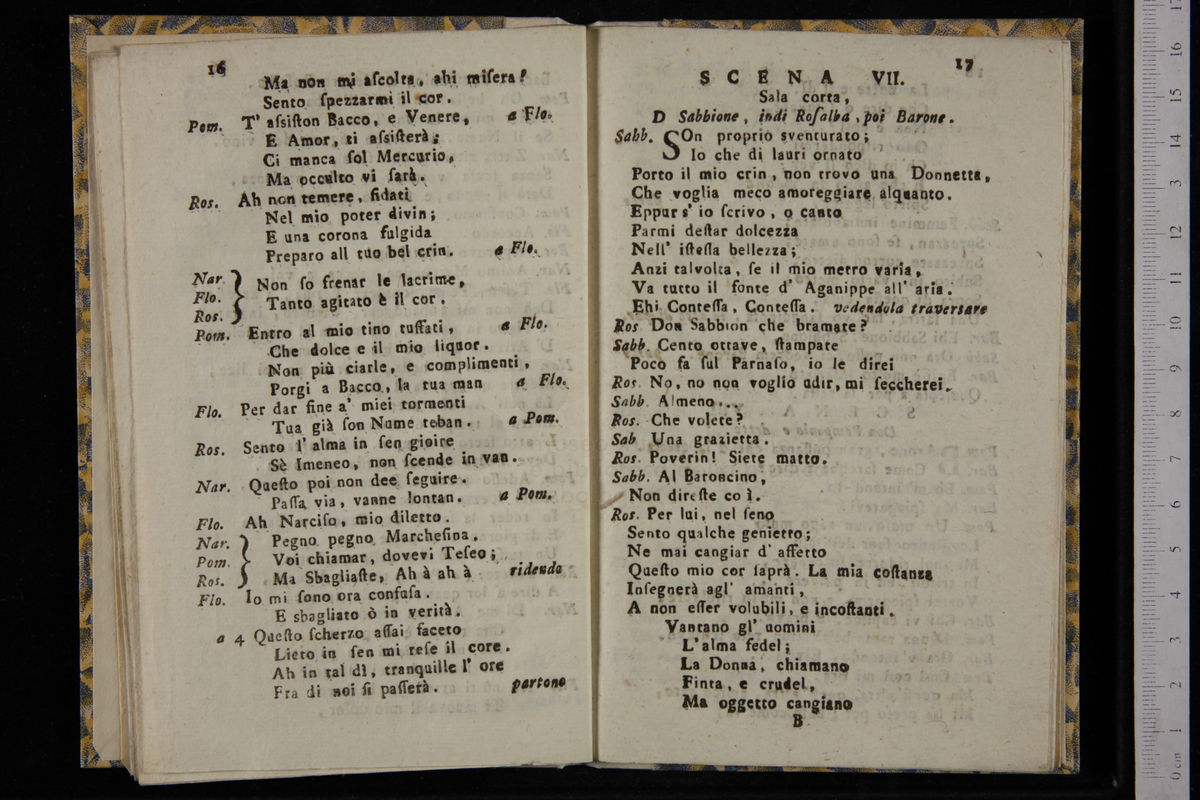 16
Ma non mi aſcolta, ahi miſera!
Sento ſpezzarmi il cor.
Pom. T' aſsiſton Bacco, e Venere, a Flo.
E Amor, ti aſsiſterà;
Ci manca ſol Mercurio,
Ma occulto vi ſarà.
Ros. Ah non temere, fidati
Nel mio poter divin;
E una corona fulgida
Preparo all tuo bel crin. a Flo.
Nar. } Non ſo frenar le lacrime,
Flo. } Tanto agitato è il cor.
Ros. }
Pom. Entro al mio tino tuffati, a Flo.
Che dolce e il mio liquor.
Non più ciarle, e complimenti,
Porgi a Bacco, la tua man a Flo.
Flo. Per dar fine a' miei tormenti
Tua già ſon Nume teban. a Pom.
Ros. Sento l' alma in ſen gioire
Sè Imeneo, non ſcende in van.
Nar. Queſto poi non dee ſeguire.
Paſſa via, vanne lontan. a Pom.
Flo. Ah Narciſo, mio diletto.
Nar. } Pegno pegno Marcheſina,
Pom. } Voi chiamar, dovevi Teſeo;
Ros. } Ma Sbagliaſte, Ah à ah à ridendo
Flo. Io mi ſono ora confuſa.
E sbagliato ò in verità.
a 4 Queſto ſcherzo aſſai faceto
Lieto in ſen mi reſe il core.
Ah in tal dì, tranquille l' ore
Fra di noi ſi paſſerà. partono
17
SCENA VII.
Sala corta,
D Sabbione, indi Roſalba, poi Barone.
Sabb. SOn proprio sventurato;
Io che di lauri ornato
Porto il mio crin, non trovo una Donnetta,
Che voglia meco amoreggiare alquanto.
Eppur s' io ſcrivo, o canto
Parmi deſtar dolcezza
Nell' iſteſſa bellezza;
Anzi talvolta, ſe il mio metro varia,
Va tutto il fonte d' Aganippe all' aria.
Ehi Conteſſa, Conteſſa. vedendola traversare
Ros Don Sabbion che bramate?
Sabb. Cento ottave, ſtampate
Poco fa ſul Parnaſo, io le direi
Ros. No, no non voglio udir, mi ſeccherei.
Sabb. Almeno...
Ros. Che volete?
Sab Una grazietta.
Ros. Poverin! Siete matto.
Sabb. Al Baroncino,
Non direſte co ì.
Ros. Per lui, nel ſeno
Sento qualche genietto;
Ne mai cangiar d' affetto
Queſto mio cor ſaprà. La mia coſtanza
Inſegnerà agl' amanti,
A non eſſer volubili, e incoſtanti.
Vantano gl' uomini
L'alma fedel;
La Donna, chiamano
Finta, e crudel,
Ma oggetto cangiano
B